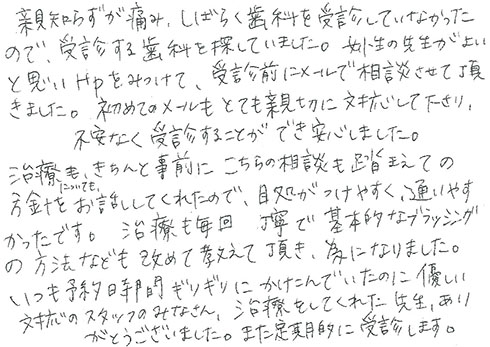 親知らずが痛み、しばらく歯科を受診していなかった
ので、受診する歯科を探していました。女性の先生がよい
と思いHpをみつけて、受診前にメールで相談させて頂
きました。初めてのメールもとても親切に対応して下さり、
不安なく受診することができ安心しました。
治療も、きちんと事前にこちらの相談も踏まえての
方針についてを、お話ししてくれたので、目処がつけやすく、通いやす
かったです。治療も毎回丁寧で基本的なブラッシング
の方法なども改めて教えて頂き、為になりました。
いつも予約時間ギリギリにかけこんでいたのに優しい
対応のスタッフのみなさん、治療をしてくれた先生、あり
がとうございました。また定期的に受診します。